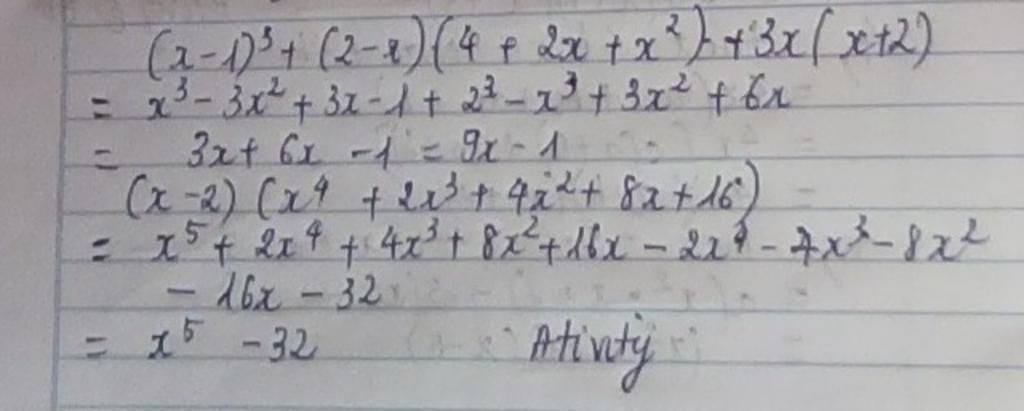 (x-1)³ + (2-x)(4 + 2x + x²) + 3x(x+2)
= x³ - 3x² + 3x - 1 + 2³ - x³ + 3x² + 6x
= 3x + 6x - 1 = 9x - 1
(x-2)(x⁴ + 2x³ + 4x² + 8x + 16)
= x⁵ + 2x⁴ + 4x³ + 8x² + 16x - 2x⁴ - 4x³ - 8x²
- 16x - 32
= x⁵ - 32 Ativity